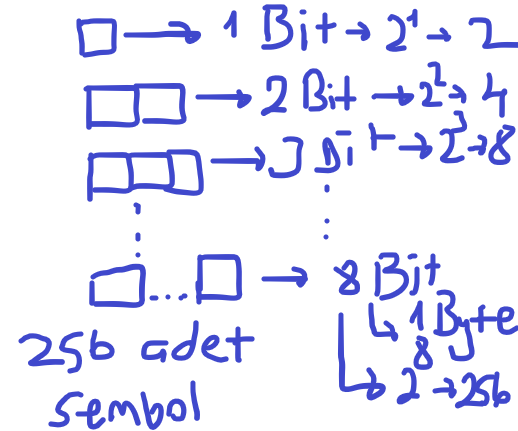 1 Bit → 2¹ → 2
2 Bit → 2² → 4
3 Bit → 2³ → 8
8 Bit
1 Byte
2⁸ → 256
256 adet
sembol